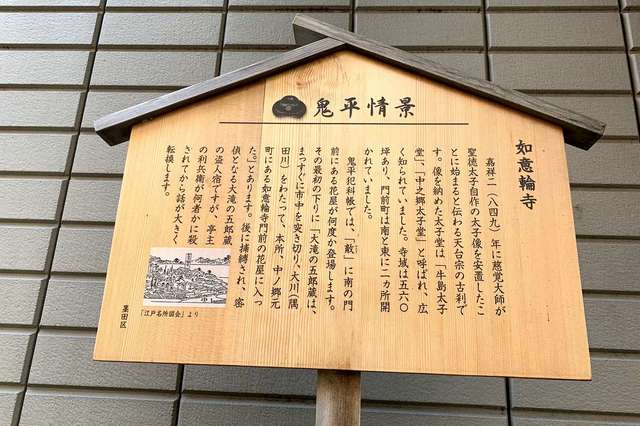 鬼平情景
如意輪寺
嘉祥二（八四九）年に慈覚大師が
聖徳太子自作の太子像を安置したこ
とに始まると伝わる天台宗の古刹で
す。像を納めた太子堂は「牛島太子
堂」、「中之郷太子堂」と呼ばれ、広
く知られていました。寺域は五六〇
坪あり、門前町は南と東に二ヵ所開
かれていました。
鬼平犯科帳では、「敵」に南の門
前にある花屋が何度か登場します。
その最初の下りに「大滝の五郎蔵は、
まっすぐに市中を突き切り、大川（隅
田川）をわたって、本所、中ノ郷元
町にある如意輪寺門前の花屋に入っ
た。」とあります。後に捕縛され、密
偵となる大滝の五郎蔵
の盗人宿ですが、亭主
の利兵衛が何者かに殺
されてから話が大きく
転換します。
「江戸名所図会」より
墨田区